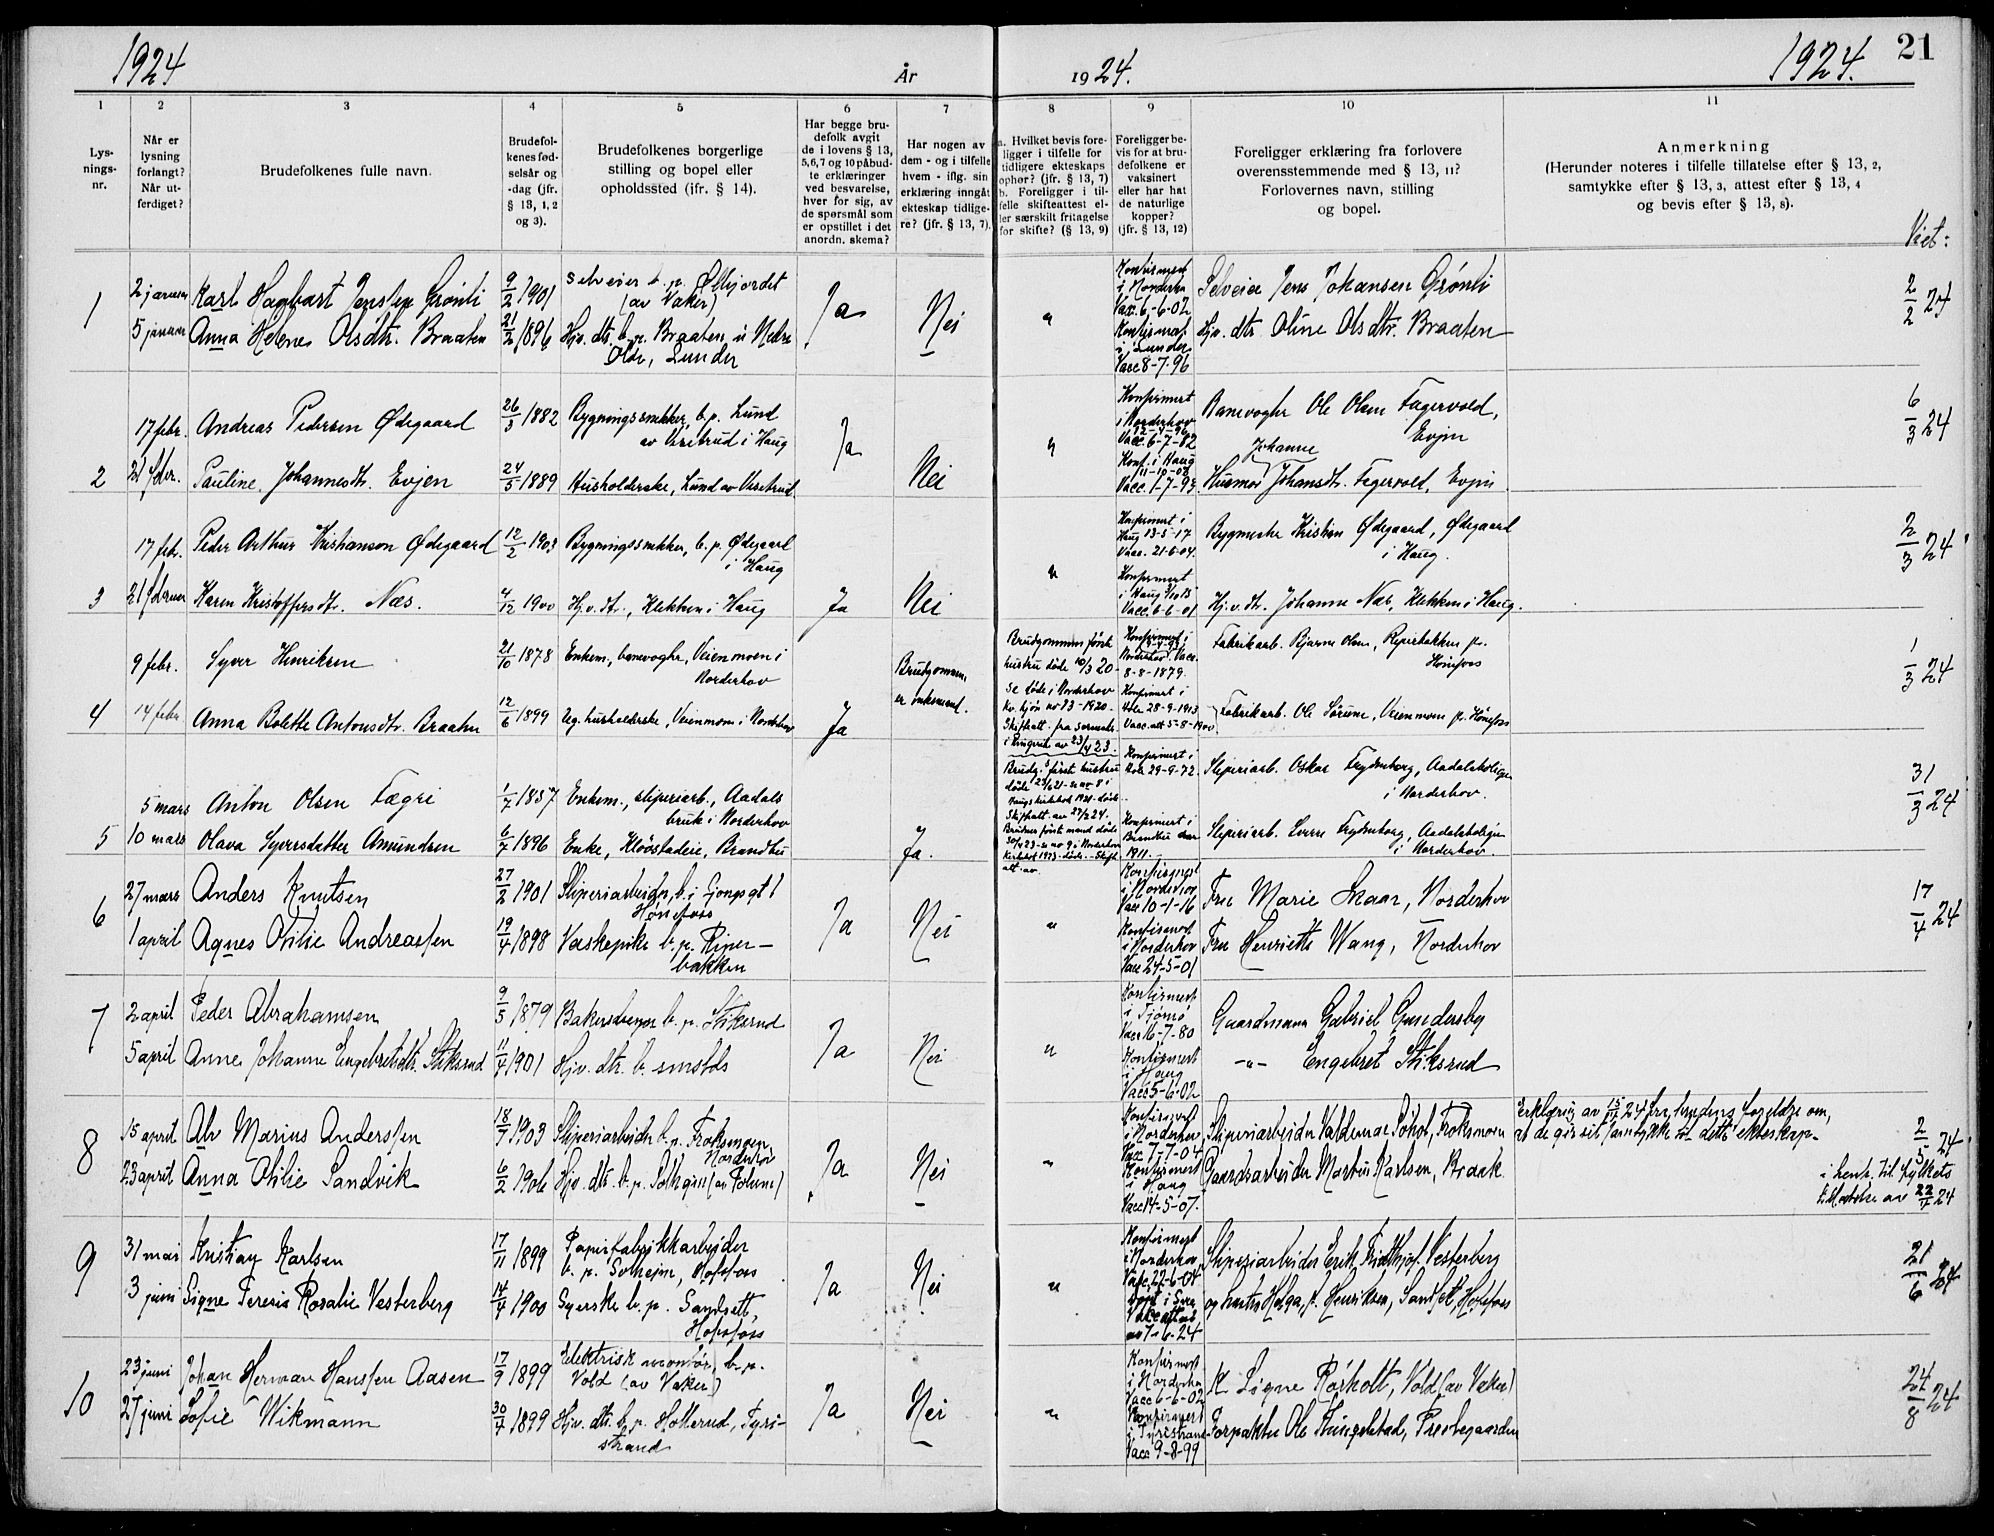 1924
År
1924.
1924.
21
1
2
3
4
5
6
7
8
9
10
11
Lys-
nings-
nr.
Når er
lysning
forlangt?
Når ut-
ferdiget?
Brudefolkenes fulle navn.
Brudefol-
kenes fød-
selsår og
-dag (jfr.
§ 13, 1, 2
og 3).
Brudefolkenes borgerlige
stilling og bopel eller
opholdssted (jfr. § 14).
Har begge bru-
defolk avgit
de i lovens § 13,
5,6,7 og 10 påbud-
te erklæringer
ved besvarelse,
hver for sig, av
de spørsmål som
er opstillet i det
anordn. skema?
Har nogen av
dem - og i tilfelle
hvem - iflg. sin
erklæring inngått
ekteskap tidlige-
re? (jfr. § 13, 7).
a. Hvilket bevis fore-
ligger i tilfelle for
tidligere ekteskaps
ophør? (jfr. § 13, 7)
b. Foreligger i til-
felle skifteattest el-
ler særskilt fritagelse
for skifte? (§ 13, 9)
Foreligger be-
vis for at bru-
defolkene er
vaksinert
eller har hat
de naturlige
kopper?
(jfr. § 13, 12)
Foreligger erklæring fra forlovere
overensstemmende med § 13, 11?
Forlovernes navn, stilling
og bopel.
Anmerkning
(Herunder noteres i tilfelle tillatelse efter § 13, 2,
samtykke efter § 13, 3, attest efter § 13, 4
og bevis efter § 13, 8).
Viet:
1
2 januar
Karl Hagbart Jensen Grønli
9/2 1901
Selveier b. p.
(av Vaker)
Ja
Nei
"
Konfirmert
i Norderhov
Vacc. 6-6-02
Selveier Jens Johansen Grønli
2/2 24
5 januar
Anna Helene Olsdtr. Braaten
21/2 1896
Hjv. dtr. b. p. Braaten u Nedre
Olde, Lunder
Konfirmert
i Lunder
Vacc 8-7-96
Hjv. dtr. Oline Olsdtr. Braaten
2
17 febr.
Andreas Pedersen Ødegaard
26/3 1882
Bygningssnekker, b. p. Lund
av Vesetrud i Haug
Ja
Nei
"
Konfirmert
i Norderhov
Vacc. 6-7-82
Banevogter Ole Olsen Fagervold,
Evjen
6/3 24
21 febr.
Pauline Johannesdtr. Evjen
24/5 1889
Husholderske, Lund av Vesetrud
Konf. i Haug
Johanne
Husmor Johansdtr. Fagervold, Evjen
3
17 febr.
Peder Arthur Kristiansen Ødegaard
12/2 1903
Bygningssnekker, b. p. Ødegaard
i Haug
Ja
Nei
"
Konfirmert i
Haug 13-5-17
Vacc. 21-6-04.
Bygmester Kristian Ødegaard, Ødegaard
i Haug.
2/3 24
21 februar
Karen Kristoffersdtr. Næs.
4/12 1900
Hj.v. dt., Klekken i Haug
Konfirmert
Vacc. 6-6-01
Hj.v. dt. Johanne Næs, Klekken i Haug.
4
9 febr.
Syver Henriksen
21/10 1878
Enkem., banevogter, Veienmoen i
Norderhov
Ja
Brudgommen
er enkemand.
Brudgommens første
hustru døde 10/3 20-
se døde i Norderhov
kv. kjøn no 23-1920.
i Ringerike av 23/4 23.
Konfirmert i
Norderhov. Vacc.
8-8-1879.
Fabrikarb. Bjarne Olsen, Ryperbakken pr.
Hønefoss
1/3 24
14 febr
Anna Bolette Antonsdtr. Braaten
12/6 1899
Ug. husholderske, Veienmoen i Norderhov
Konfirmert i
Hole 28-9-1913
Vacc. att 5-8-1900
Fabrikarb. Ole Sørum, Veienmoen pr. Hønefoss
5
5 mars
Anton Olsen Fægri
1/7 1857
Enkem., sliperiarb., Aadals
bruk i Norderhov
Ja.
Brudg.s første hustru
Konfirmert i
Hole 29-9-72.
Sliperiarb. Oskar Frydenborg, Aadalsboligen
i Norderhov.
31/3 24
10 mars
Olava Syversdatter Amundsen
6/7 1896
Enke, Kløvstadeie, Brandbu
Konfirmert i
Brandbu
1911.
Sliperiarb. Sverre Frydenborg, Aadalsboligen
i Norderhov.
6
27 mars
Anders Knutsen
27/2 1901
Sliperiarbeider, b. i Gongsgt 1
Hønefoss
Ja
Nei
"
Konfirmert
i Norderhov
Vacc 10-1-16
Fru Marie Skaar, Norderhov
17/4 24
1 april
Agnes Otilie Andreassen
19/4 1898
Vaskepike b. p. Riper-
bakken
Konfirmert
i Norderhov
Vacc 24-5-01
Fru Henriette Wang, Norderhov
7
2 april
Peder Abrahamsen
9/5 1879
Bakersvenn b. p. Stiksrud
Ja
Nei
"
Konfirmert
i Tjømø
Vacc 16-7-80
Gaardmann Gabriel Gundersby
5 april
Anne Johanne Engebretsdtr. Stiksrud
11/4 1901
Hjv. dtr. b. smstds
Konfirmert
i Haug
Vacc 5-6-02
-"- Engebret Stiksrud
8
15 april
Alv Marius Anderssen
18/7 1903
Sliperiarbeider b. p. Froksmoen
Norderhov
Ja
Nei
"
Konfirmert
i Norderhov
Vacc 7-7-04
Sliperiarbeider Valdemar Søhol, Froksmoen
Erklæring av 15/4 24 fra brudens foreldre om,
at de gir sit samtykke til dette ekteskap-
2/5 24
23 april
Anna Otilie Sandvik
6/2 1906
Hjv. dtr. b. p.
Konfirmert
i Haug
Vacc 14-5-07.
Gaardsarbeider Martin Karlsen, Braak.
i henh. til fylkets
tilladelse av 22/4 24
9
31 mai
Kristian Karlsen
17/11 1899
Papirfabrikkarbeider
b. p. Solheim, Hofsfoss
Ja
Nei
"
Konfirmert
i Norderhov
Vacc. 22-6-04
Sliperiarbeider Erik Fridthjof Vesterberg
21/6 24
3 juni
Signe Teresie Rosalie Vesterberg
14/4 1900
Syerske b. p. Sandsett,
Hofsfoss
av 7-6-24
og hustru Helga, f. Henriksen, Sandsett, Hofsfoss
10
23 juni
Johan Herman Hanssen Aasen
17/9 1899
Elektrisk montør, b. p.
Vold (av Vaker)
Ja
Nei
"
Konfirmert
i Norderhov
Vacc 6-6-02
Signe Røsholt, Vold (av Vaker)
24/8 24
27 juni
Sofie Wikmann
30/4 1899
Hjv. dtr. b. p. Hollerud, Tyri-
strand
Konfirmert
i Tyristrand
Vacc 9-8-99
Forpakter Ole Kringelstad, Prestegaarden